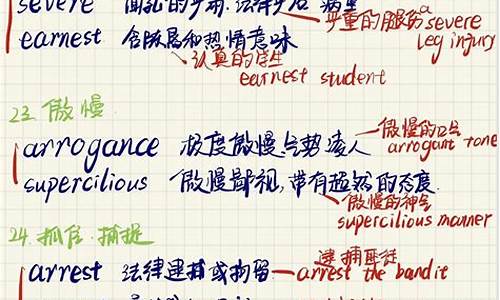 severe
严重的腿伤 a severe leg injury
earnest 含激昂和热情意味
认真的学生
earnest student
23. 傲慢
arrogance 极度傲慢,气势凌人
傲慢的口气
arrogant tone
supercilious 傲慢鄙视,带有超然的态度
傲慢的神气
supercilious manner
24. 抓住.捕捉
arrest 法律逮捕或拘留
逮捕匪徒
arrest the bandit